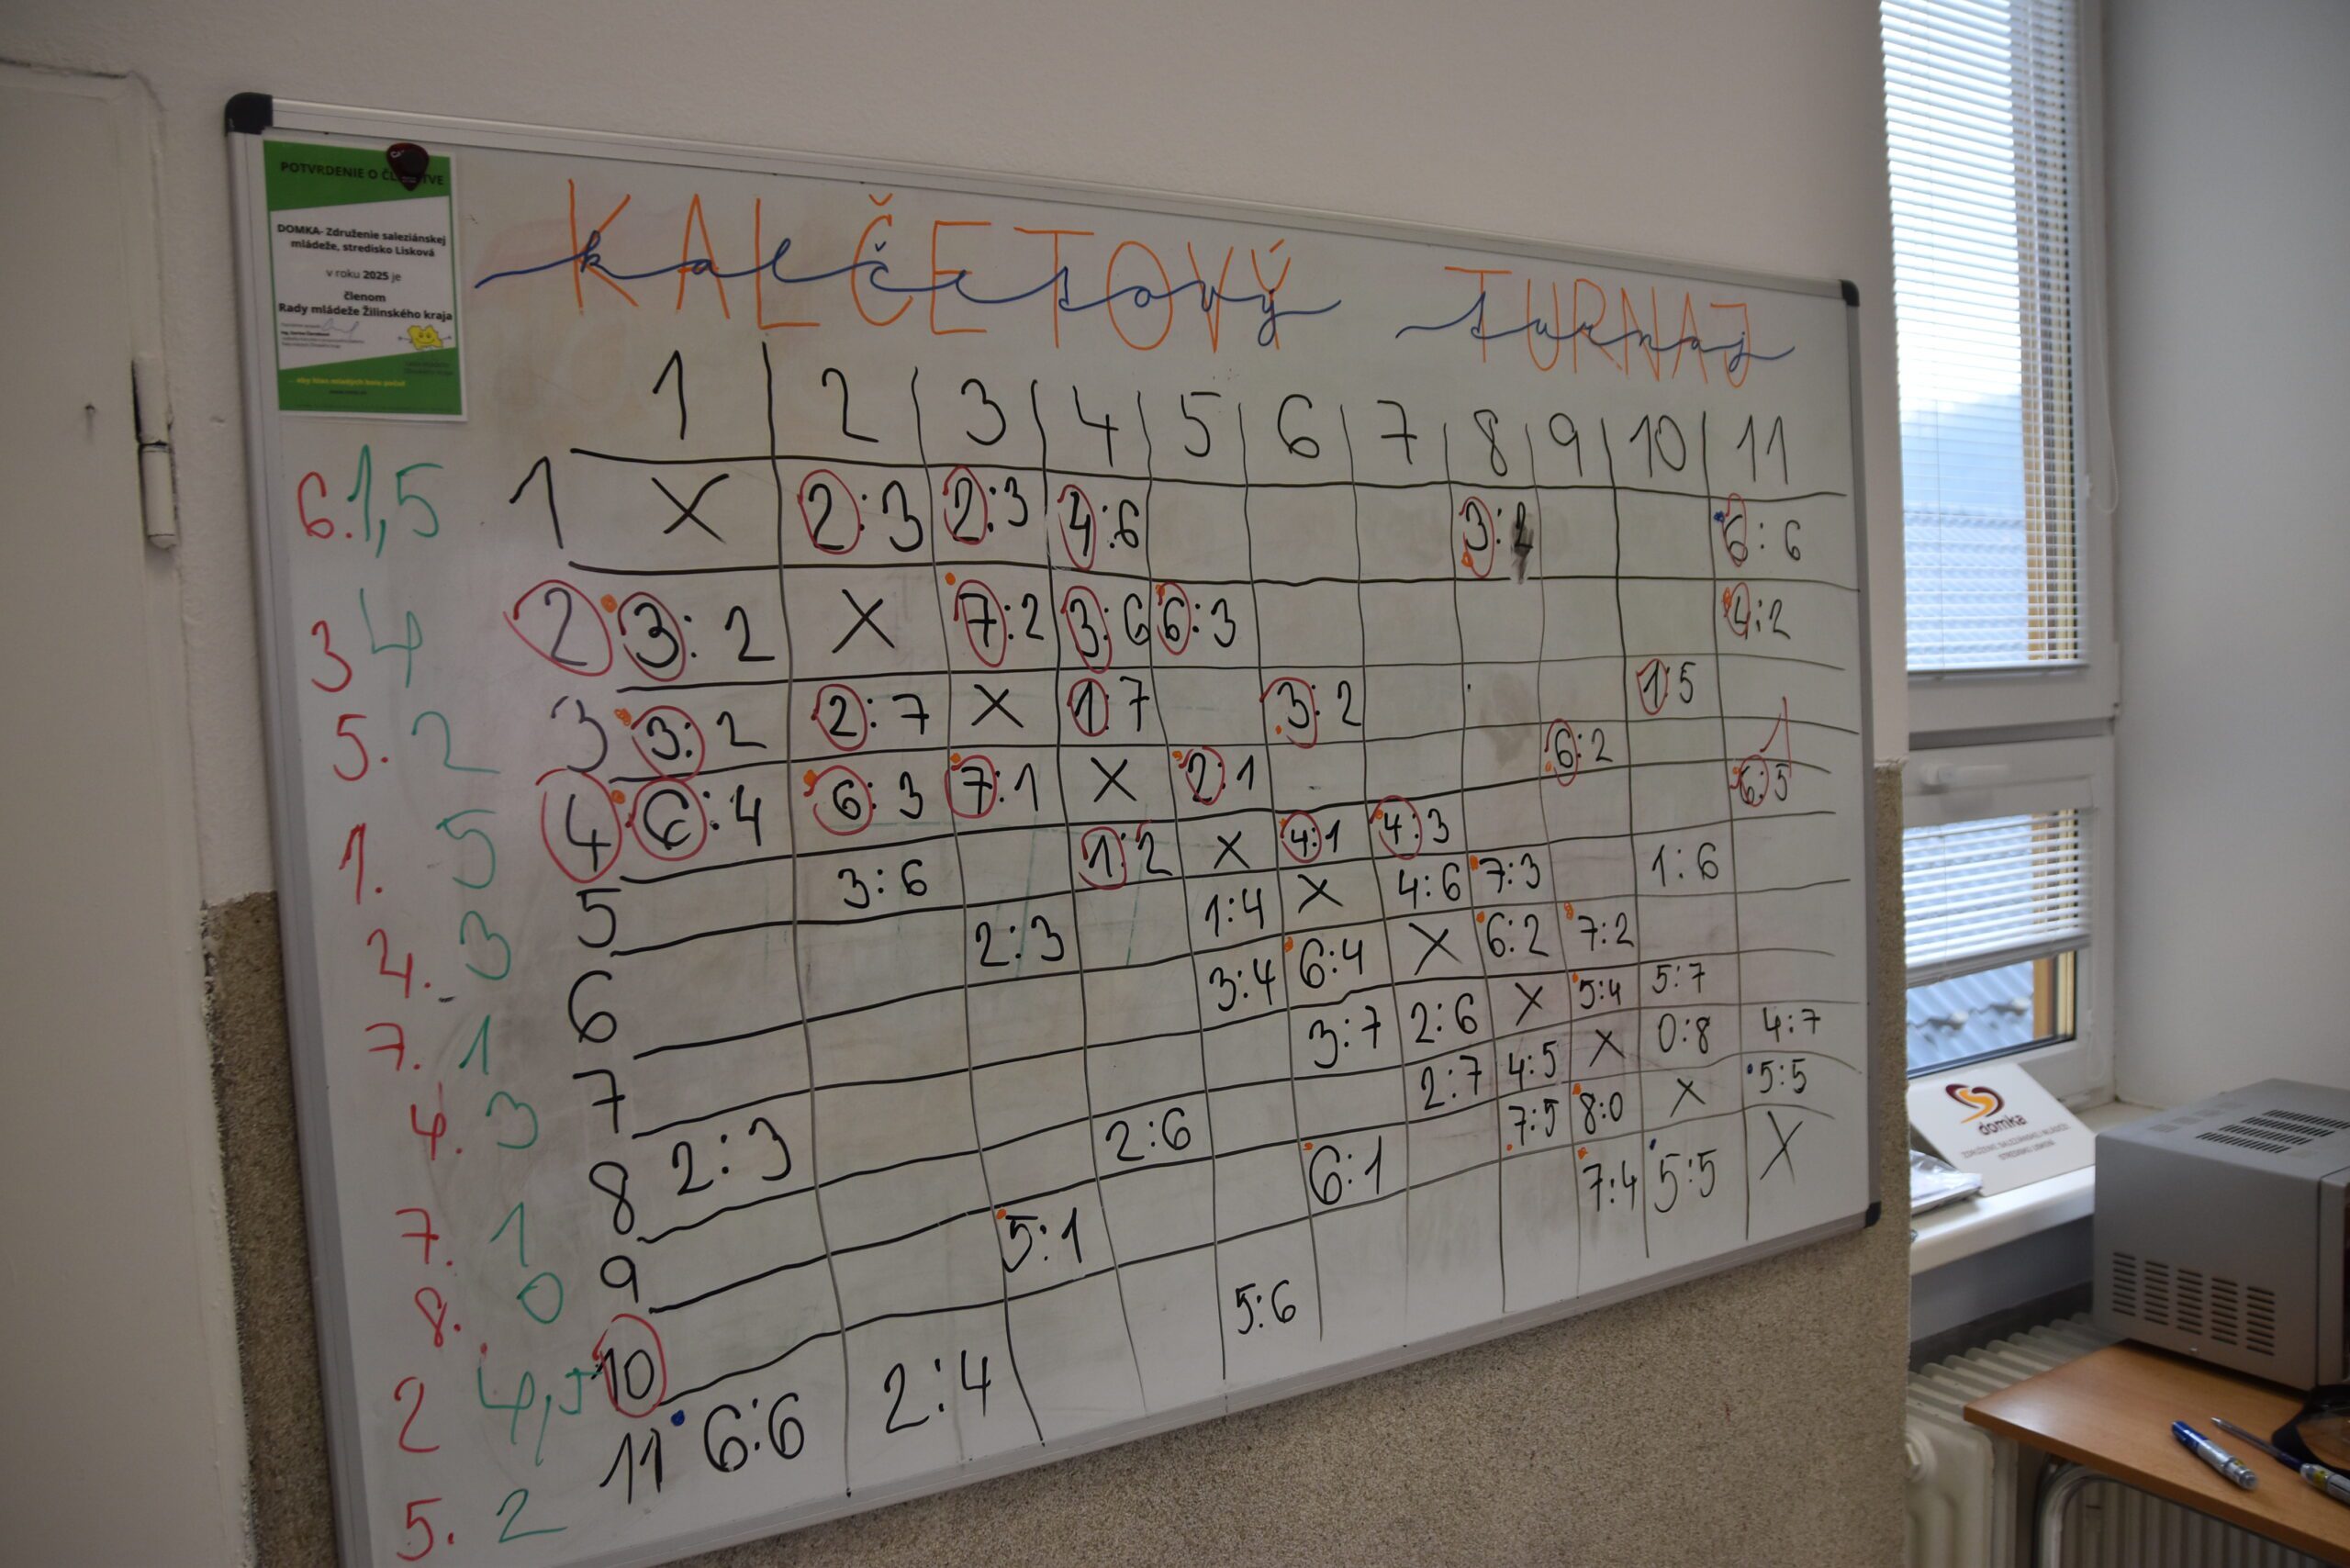 POTVRDENIE O
DOMKA- Združenie saleziánskej
mládeže, stredisko Lisková
v roku 2025 je
členom
Rady mládeže Žilinského kraja
KALČETOVÝ TURNAJ
kalčetový turnaj
1 2 3 4 5 6 7 8 9 10 11
6. 1,5 1 X 2:3 2:3 4:6 3:2 6:6
3 4 2 3:2 X 7:2 3:6 6:3 4:2
5. 2 3 3:2 2:7 X 1:7 3:2 1:5
1. 5 4 6:4 6:3 7:1 X 2:1 6:2 6:5 1
2. 3 5 3:6 1:2 X 4:1 4:3
7. 1 6 2:3 1:4 X 4:6 7:3 1:6
4. 3 7 3:4 6:4 X 6:2 7:2
7. 1 8 2:3 3:7 2:6 X 5:4 5:7
8. 0 9 2:6 2:7 4:5 X 0:8 4:7
2 4,5 10 5:1 6:1 7:5 8:0 X 5:5
5. 2 11 6:6 2:4 5:6 7:4 5:5 X
domka